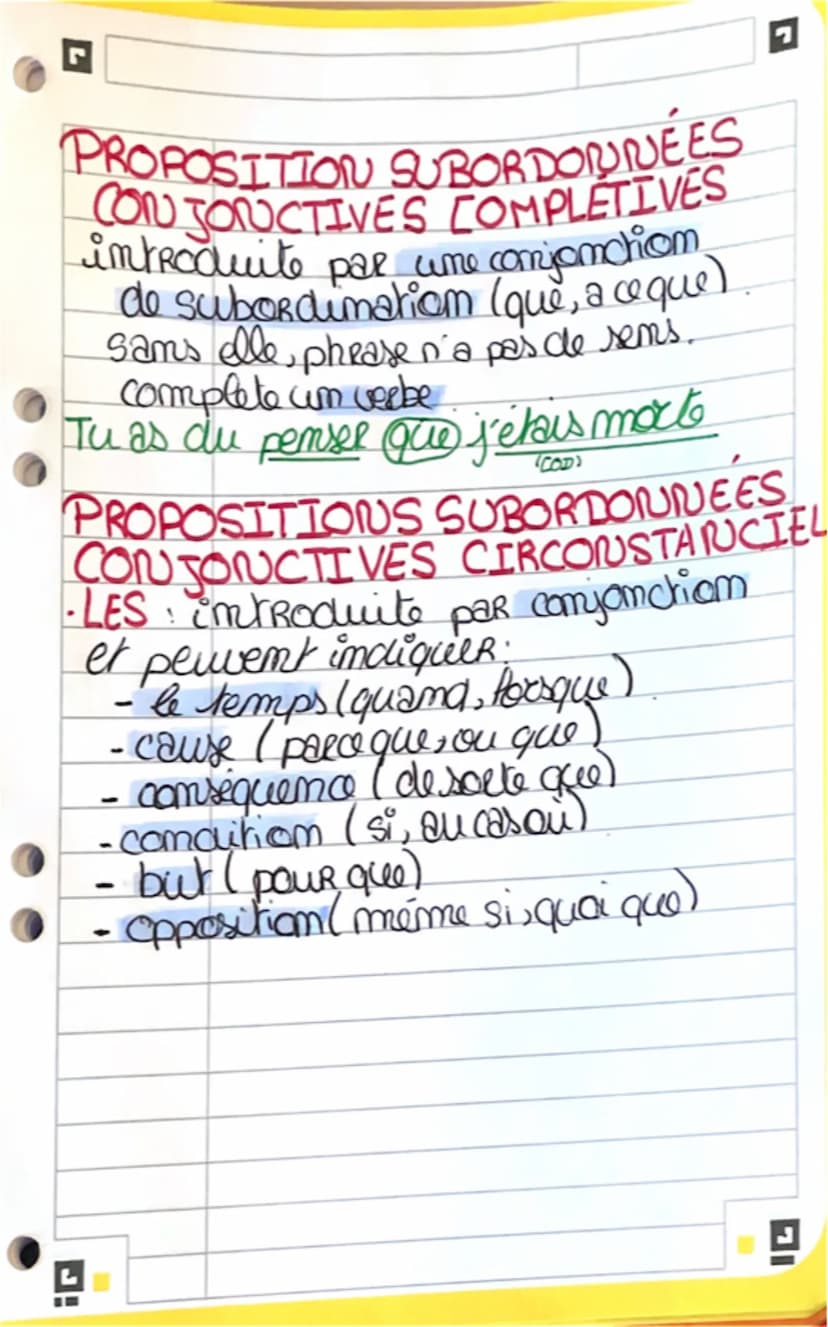 PROPOSITION SUBORDONNÉES
CONJONCTIVES COMPLÉTIVES
introduite par une conjonction
de subordination (que, a ce que).
sans elle, phrase n'a pas de sens.
complete um verbe
Tu as du penser que j'étais morte
(COD)
PROPOSITIONS SUBORDONNÉES
CONJONCTIVES CIRCONSTANCIEL
• LES : introduite par conjonction
et peuvent indiquer:
- le temps (quand, lorsque)
- cause (parce que, ou que)
- conséquence (de sorte que)
- condition (si, au cas où)
- but (pour que)
- opposition (même si, quoi que)